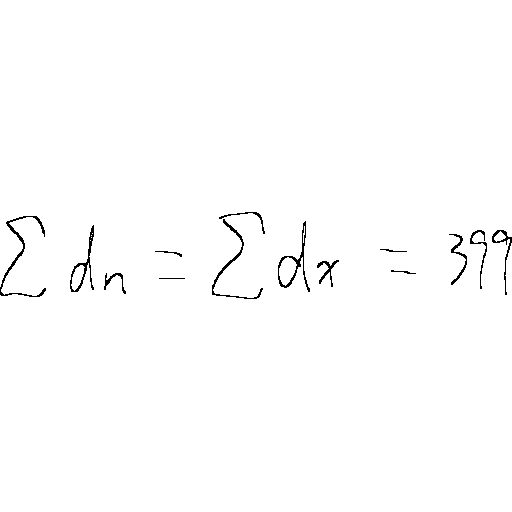 ∑ dn = ∑ dx = 399